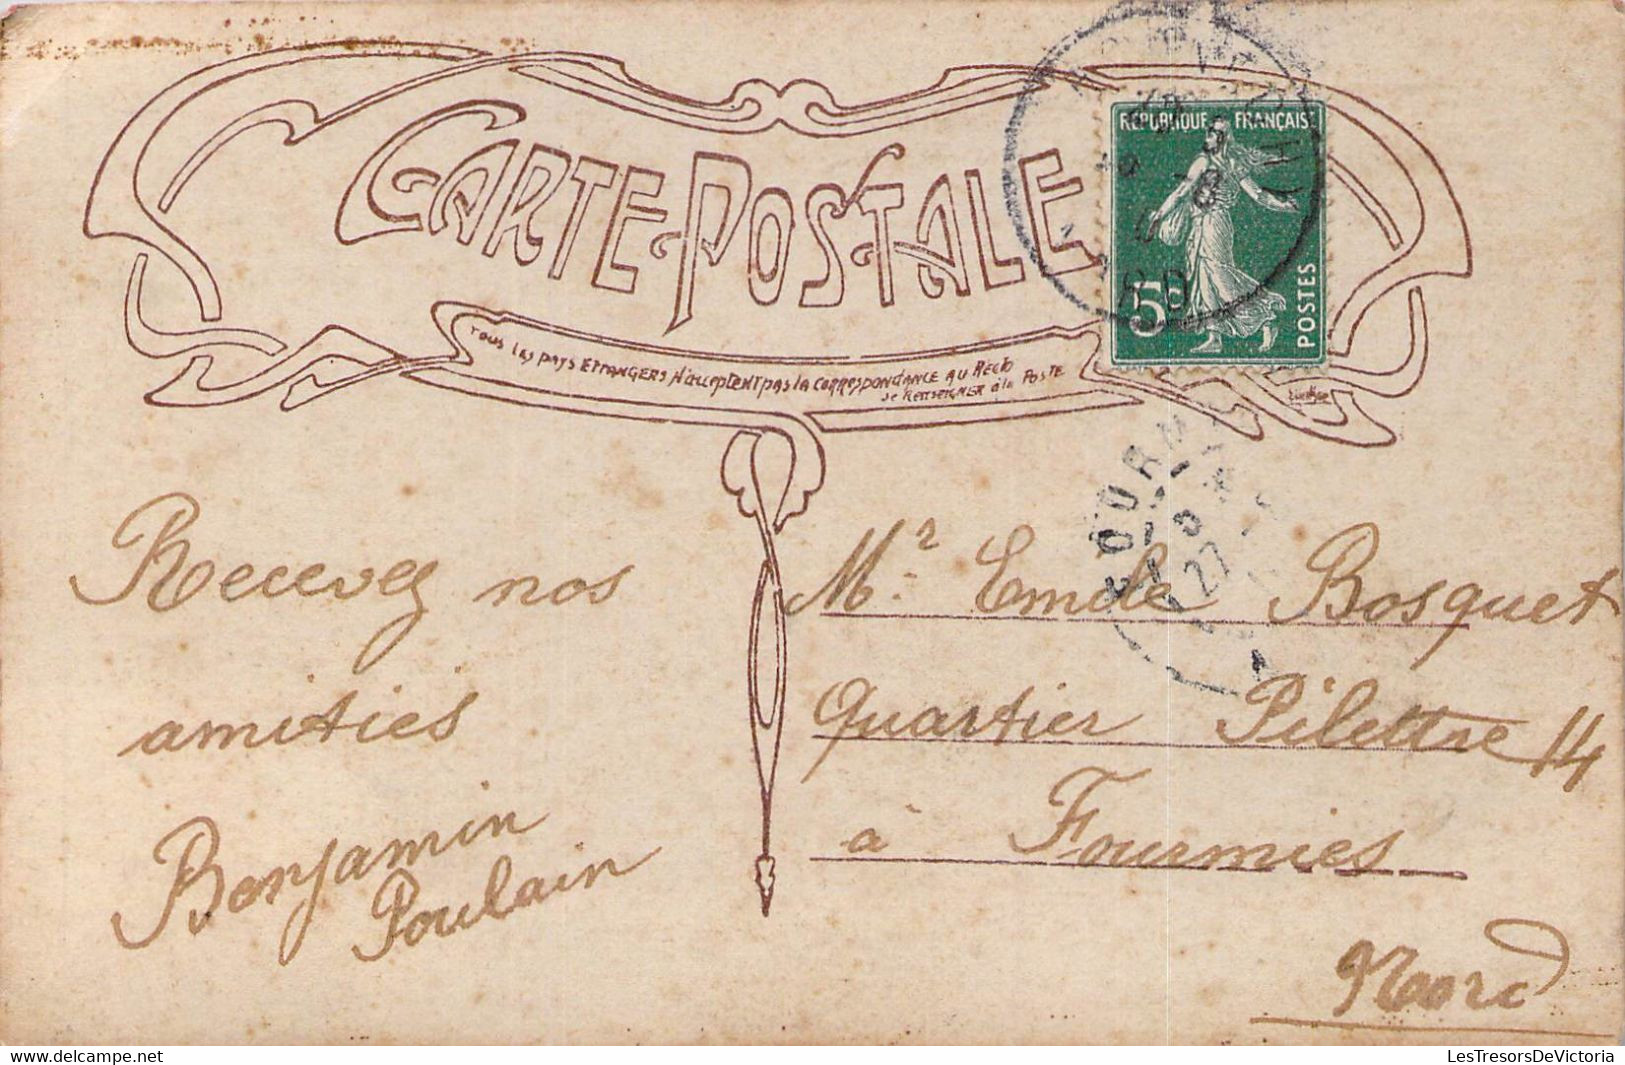 CARTE POSTALE
TOUS LES PAYS ETRANGERS N'acceptent pas la CORRESPONDANCE AU RECTO
se RENSEIGNER à la POSTE
REPUBLIQUE FRANÇAISE
5c
POSTES
NORD
FOURMIES
27
Recevez nos
amitiés
Benjamin
Poulain
Mr. Emile Bosquet
Quartier Pilettre 14
à Fourmies
Nord
Delcampe.net
LesTresorsDeVictoria